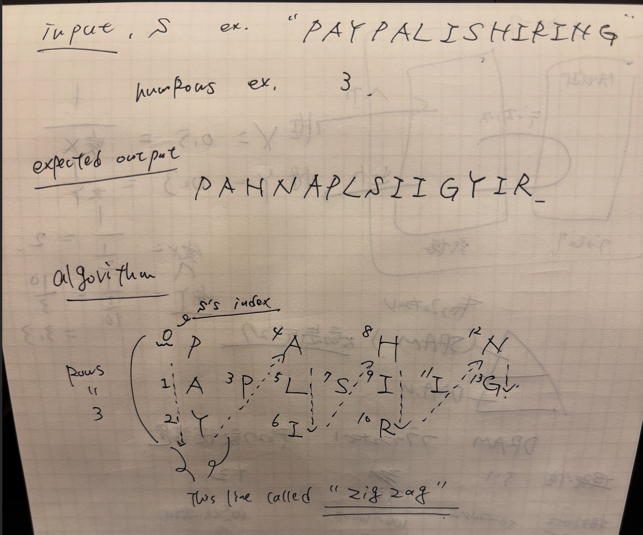 input, S ex. "PAYPALISHIRING"
numRows ex. 3.
expected output
PAHNAPLSIIGYIR_
algorithm
S's index
0 P 4 A 8 H 12 N
rows 1 A 3 P 5 L 7 S 9 I 11 I 13 G
" 2 Y 6 I 10 R
3
This line called "zigzag"